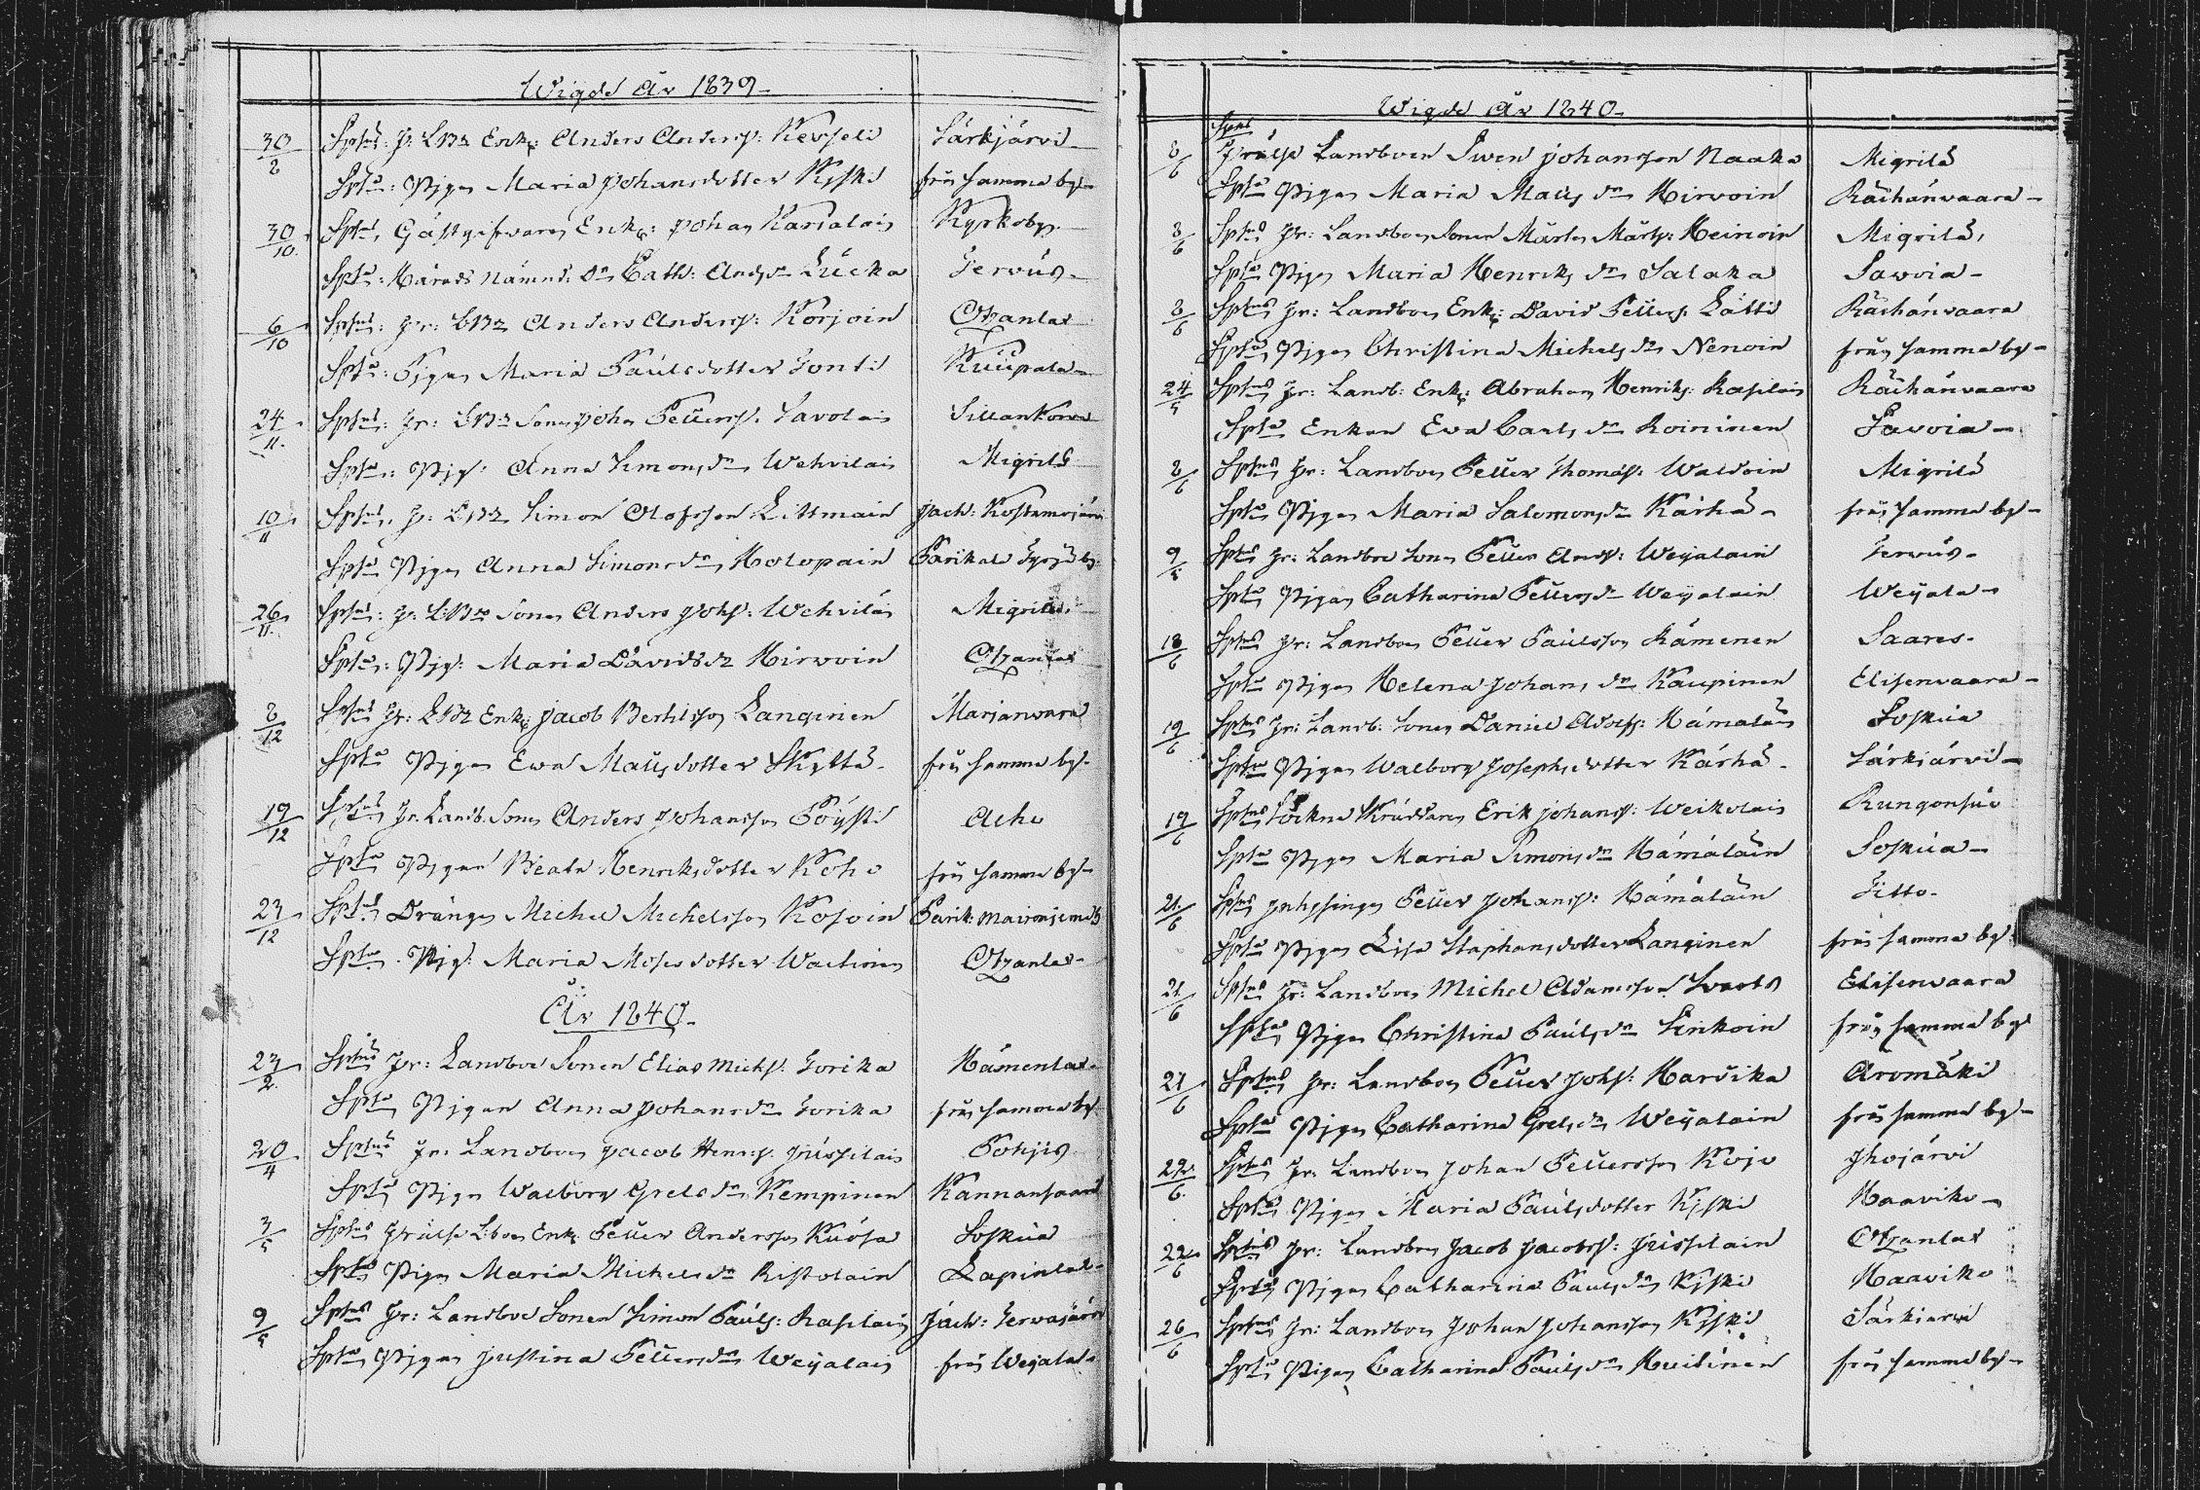 Wigde År 1839
30/8 Sptus: Fr: LBz Enkl: Anders Anders: Kevseli Särkjärvi
Spta: Pigan Maria Johansdotter Kiski från samma by
30/10 Sptus Gästgifvaren Enkl: Johan Karialain Kyrkoby
Spta: Härads Nämnd: Dr Cath: Ands Dr Lücka Tervus
6/10 Sptus: Fr: LBz Anders Anders: Korjoin Otzanlax
Spta: Pigan Maria Påulsdotter Tonti Kuupala
24/11 Sptus: Fr: LBz Sonen Johan Petters: Savolain Sillankorva
Spta: Pig: Anna Simons Dr Wehvilain Migrilä
10/11 Sptus: Fr: LBz Simon Olofsson Littmain Jach: Kostamojärvi
Spta Pigan Anna Simons Dr Holopain Parikala by
26/11 Sptus: Fr: LBz Sonen Anders Johs: Wehviläin Migrilä
Spta: Pig: Maria Davids Dr Hirwoin Otzanlax
8/12 Sptus Fr: LBz Enkl Jacob Bertilsson Langinen Marjanvara
Spta Pigan Ewa Matts dotter Skyttä från samma by
19/12 Sptus Fr Landb. Sonen Anders Johansson Pöysti Aeho
Spta Pigan Beata Henriksdotter Koho från samma by
23/12 Sptus Drängen Michel Michelsson Kosoin Parik:
Spta Pig: Maria Moses dotter Wactinen Otzanlax
År 1840
23/2 Sptus Fr: Landboe Sonen Elias Mickls: Torika Hämenlax
Spta Pigan Anna Johans Dr Torika från samma by
20/4 Sptus Fr: Landboen Jacob Henrs: Jüsselain Pohjis
Spta Pigan Walborg Grels Dr Kempinen Kannansaari
3/5 Sptus Frälse L:boen Enkl Petter Andersson Kuosa Soskua
Spta Pigan Maria Michels Dr Ristolain Lapinlax
9/5 Sptus Fr: Landboe Sonen Simon Påuls: Raselain Jach: Tervajärvi
Spta Pigan Justina Petters Dr Weijalain från Weijala
Wigde År 1840
8/6 Sptus Frälse Landboen Swen Johansson Naaka Migrilä
Spta Pigan Maria Matts Dr Hirvoin Räihänvaara
8/6 Sptus Fr: Landboen Sonen Mårten Mårts: Heinoin Migrilä
Spta Pigan Maria Henriks Dr Salaka Savoia
8/6 Sptus Fr: Landboen Enkl: David Petters: Lätti Räihänvaara
Spta Pigan Christina Michels Dr Nenoin från samma by
24/5 Sptus Fr: Landb: Enkl: Abraham Henriks: Raselain Räihänvaara
Spta Enkan Ewa Carls Dr Roininen Savoia
8/6 Sptus Fr: Landboen Petter Thomass: Waldoin Migrilä
Spta Pigan Maria Salomons Dr Kärhä från samma by
9/5 Sptus Fr: Landboe Sonen Petter Ands: Weijalain Tervus
Spta Pigan Catharina Petters Dr Weijalain Weijala
18/6 Sptus Fr: Landboen Petter Påulsson Kämenen Saares
Spta Pigan Helena Johans Dr Kaupinen Elisenvaara
19/6 Sptus Fr: Landb: Sonen Daniel Adolfs: Hämäläin Soskua
Spta Pigan Walborg Josephs dotter Kärhä Särkiärvi
19/6 Sptus Sockne Skräddaren Erik Johans: Weikolain Rungonsuo
Spta Pigan Maria Simons Dr Hämäläin Soskua
21/6 Sptus Inhysingen Petter Johans: Hämäläin Titto
Spta Pigan Lisa Staphans dotter Langinen från samma by
21/6 Sptus Fr: Landboen Michel Adamsson Svarts Elisenvaara
Spta Pigan Christina Påuls Dr Sinkoin från samma by
21/6 Sptus Fr: Landboen Petter Johs: Harvika Aromäki
Spta Pigan Catharina Grels Dr Weijalain från samma by
22/6 Sptus Fr: Landboen Johan Pettersson Kojo Ihojärvi
Spta Pigan Maria Påulsdotter Kiski Haaviko
22/6 Sptus Fr: Landboen Jacob Jacobs: Jüsselain Otzanlax
Spta Pigan Catharina Påuls Dr Kiski Haaviko
26/6 Sptus Fr: Landboen Johan Johansson Kiski Särkiärvi
Spta Pigan Catharina Påuls Dr Huitinen från samma by